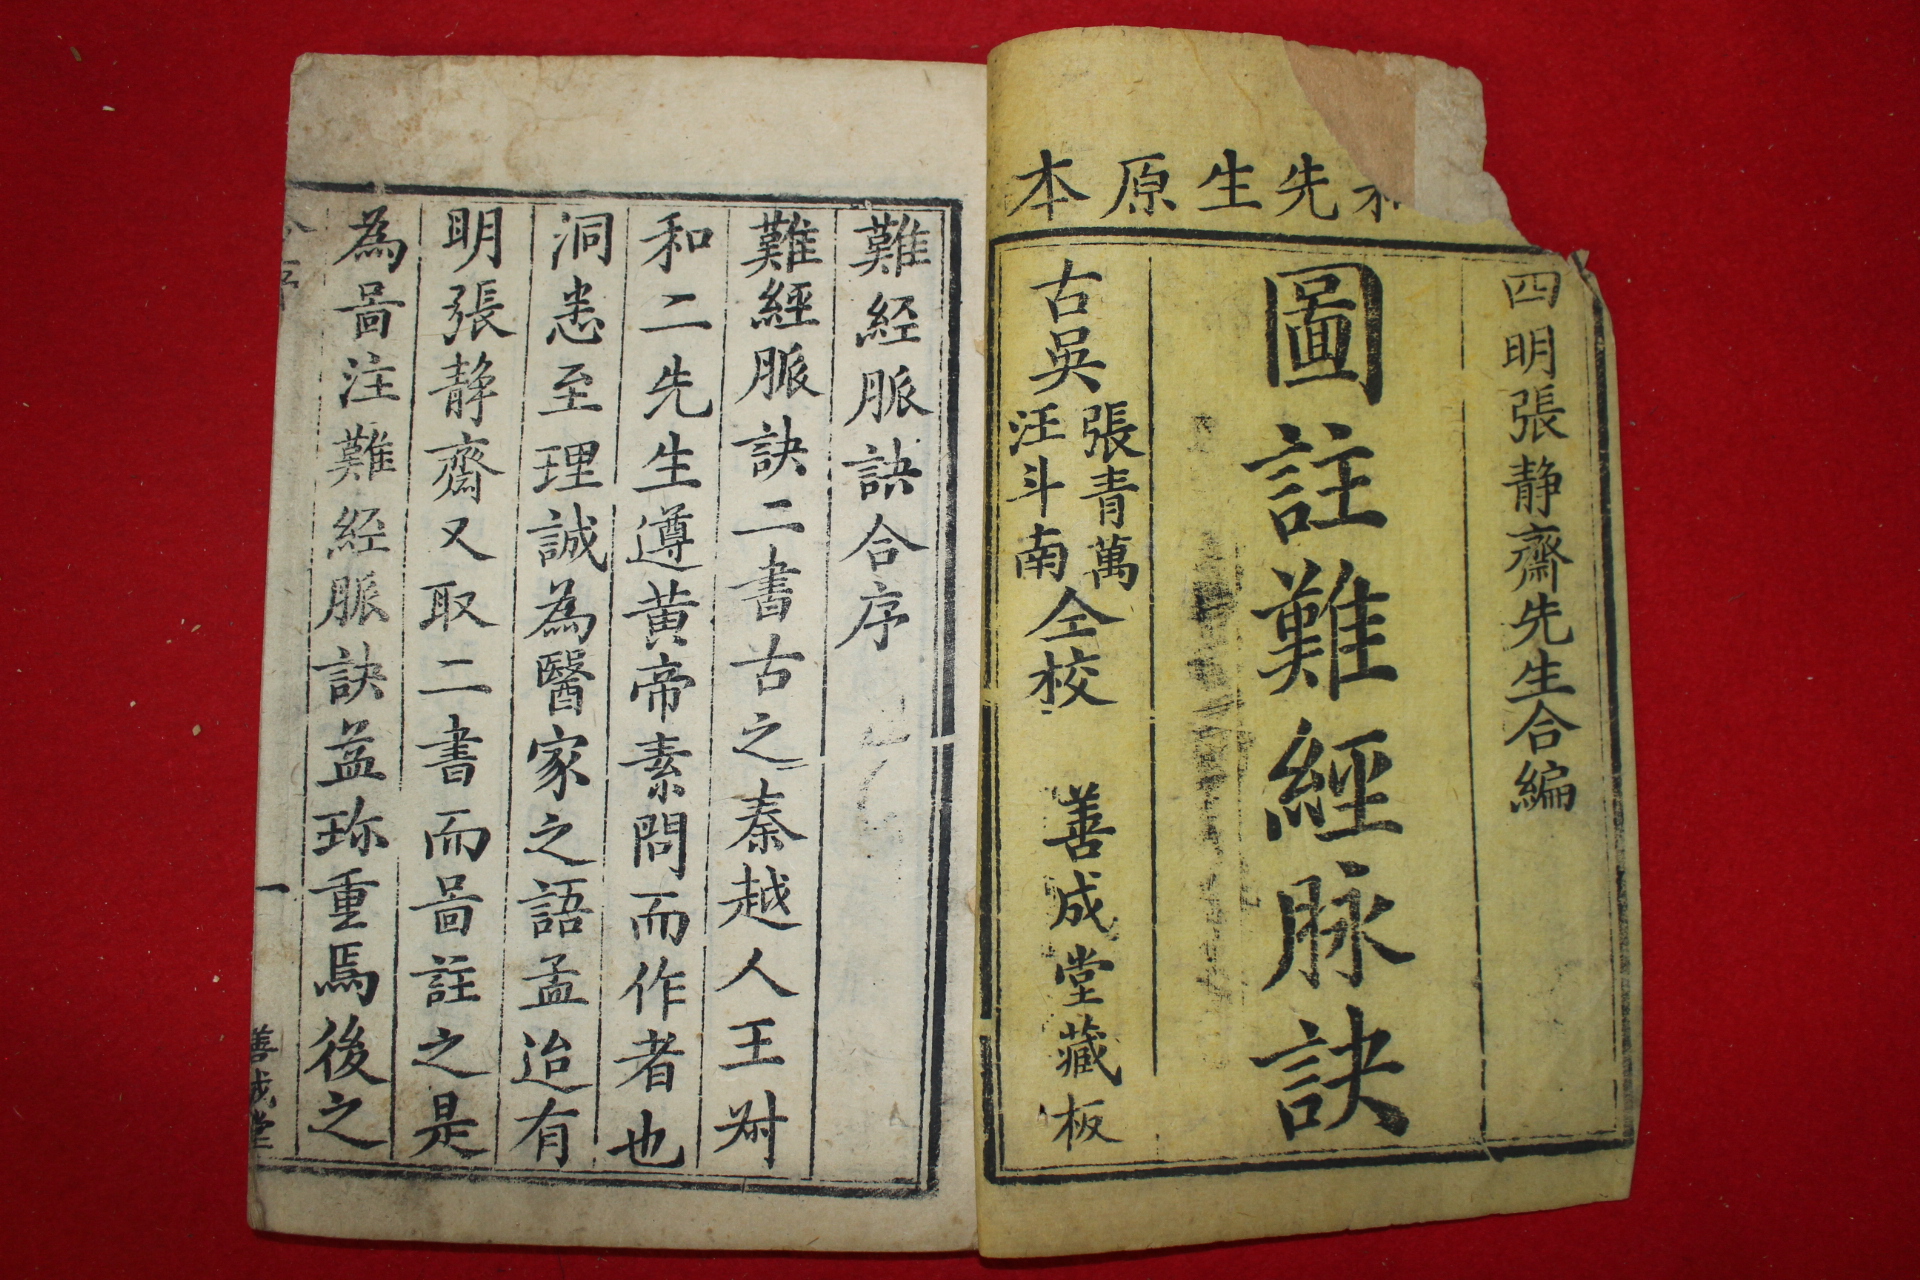 先生原本
四明張静齋先生合編
圖註難經脉訣
古吳
張青萬
汪斗南
仝校
善成堂藏板
難經脈訣合序
難經脈訣二書古之秦越人王尗
和二先生遵黃帝素問而作者也
洞悉至理誠為醫家之語孟迨有
明張静齋又取二書而啚註之是
為啚注難經脈訣孟珎重焉後之
序
一
善成堂